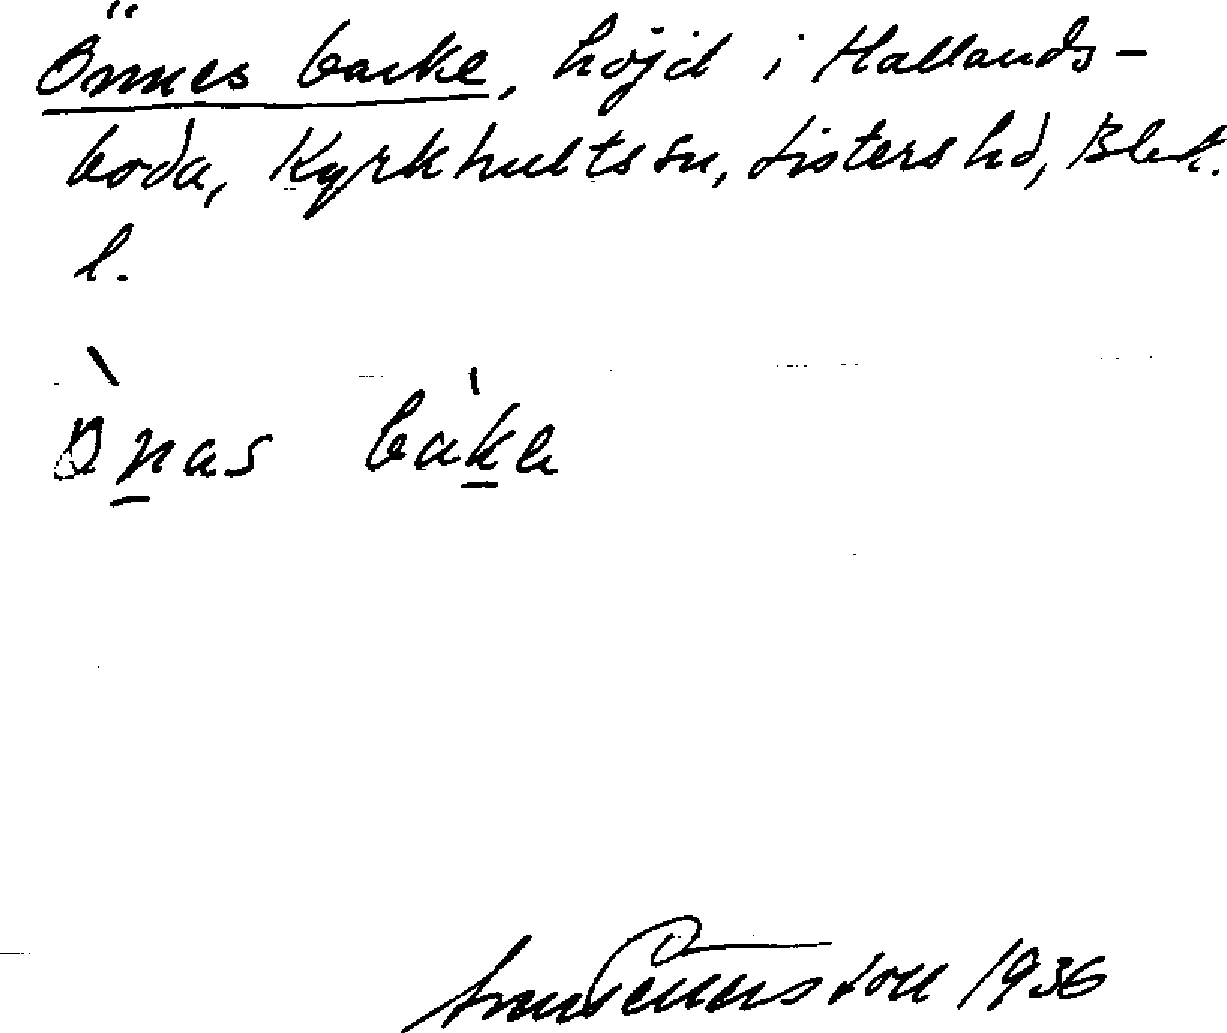 Önnes backe, höjd i Hallands-
boda, Kyrkhults sn, Listers hd, Blek.
l.
Ònas bàke
1936